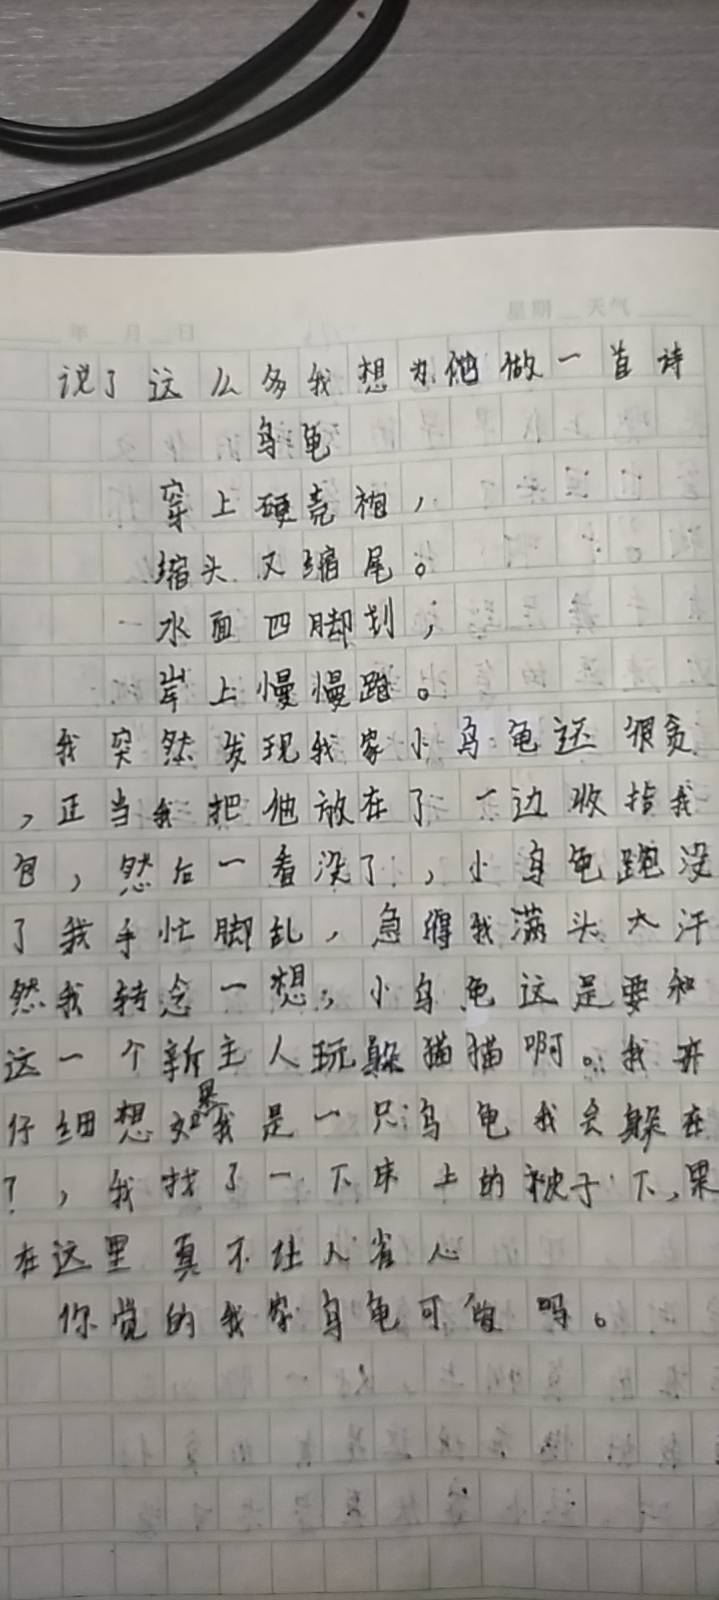 星期 天气
年 月 日
说了这么多我想为他做一首诗
乌龟
穿上硬壳袍，
缩头又缩尾。
水面四脚划，
岸上慢慢跑。
我突然发现我家小乌龟还很贪
，正当我把他放在了一边收拾我
包，然后一看没了，小乌龟跑没
了我手忙脚乱，急得我满头大汗
然我转念一想，小乌龟这是要和
这一个新主人玩躲猫猫啊。我
仔细想如果我是一只乌龟我会躲在
？，我找了一下床上的被子下，果
在这里真不让人省心
你觉的我家乌龟可爱吗。